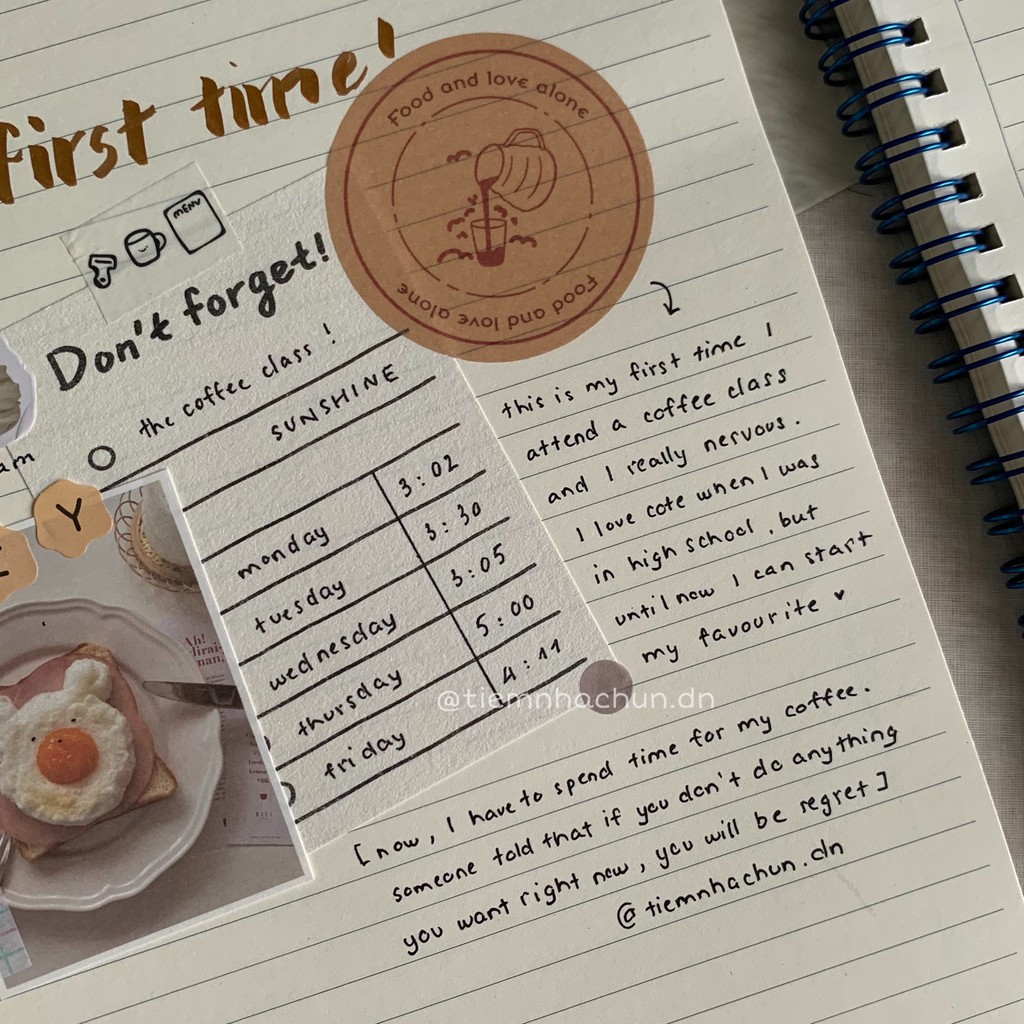 first time!
Food and love alone
Food and love alone
MENU
Don't forget!
the coffee class!
SUNSHINE
monday 3:02
tuesday 3:30
wednesday 3:05
thursday 5:00
friday 4:11
am
Y
this is my first time I
attend a coffee class
and I really nervous.
I love cote when I was
in high school, but
until now I can start
my favourite ♥
@tiemnhachun.dn
[now, I have to spend time for my coffee.
someone told that if you don't do anything
you want right now, you will be regret]
@tiemnhachun.dn